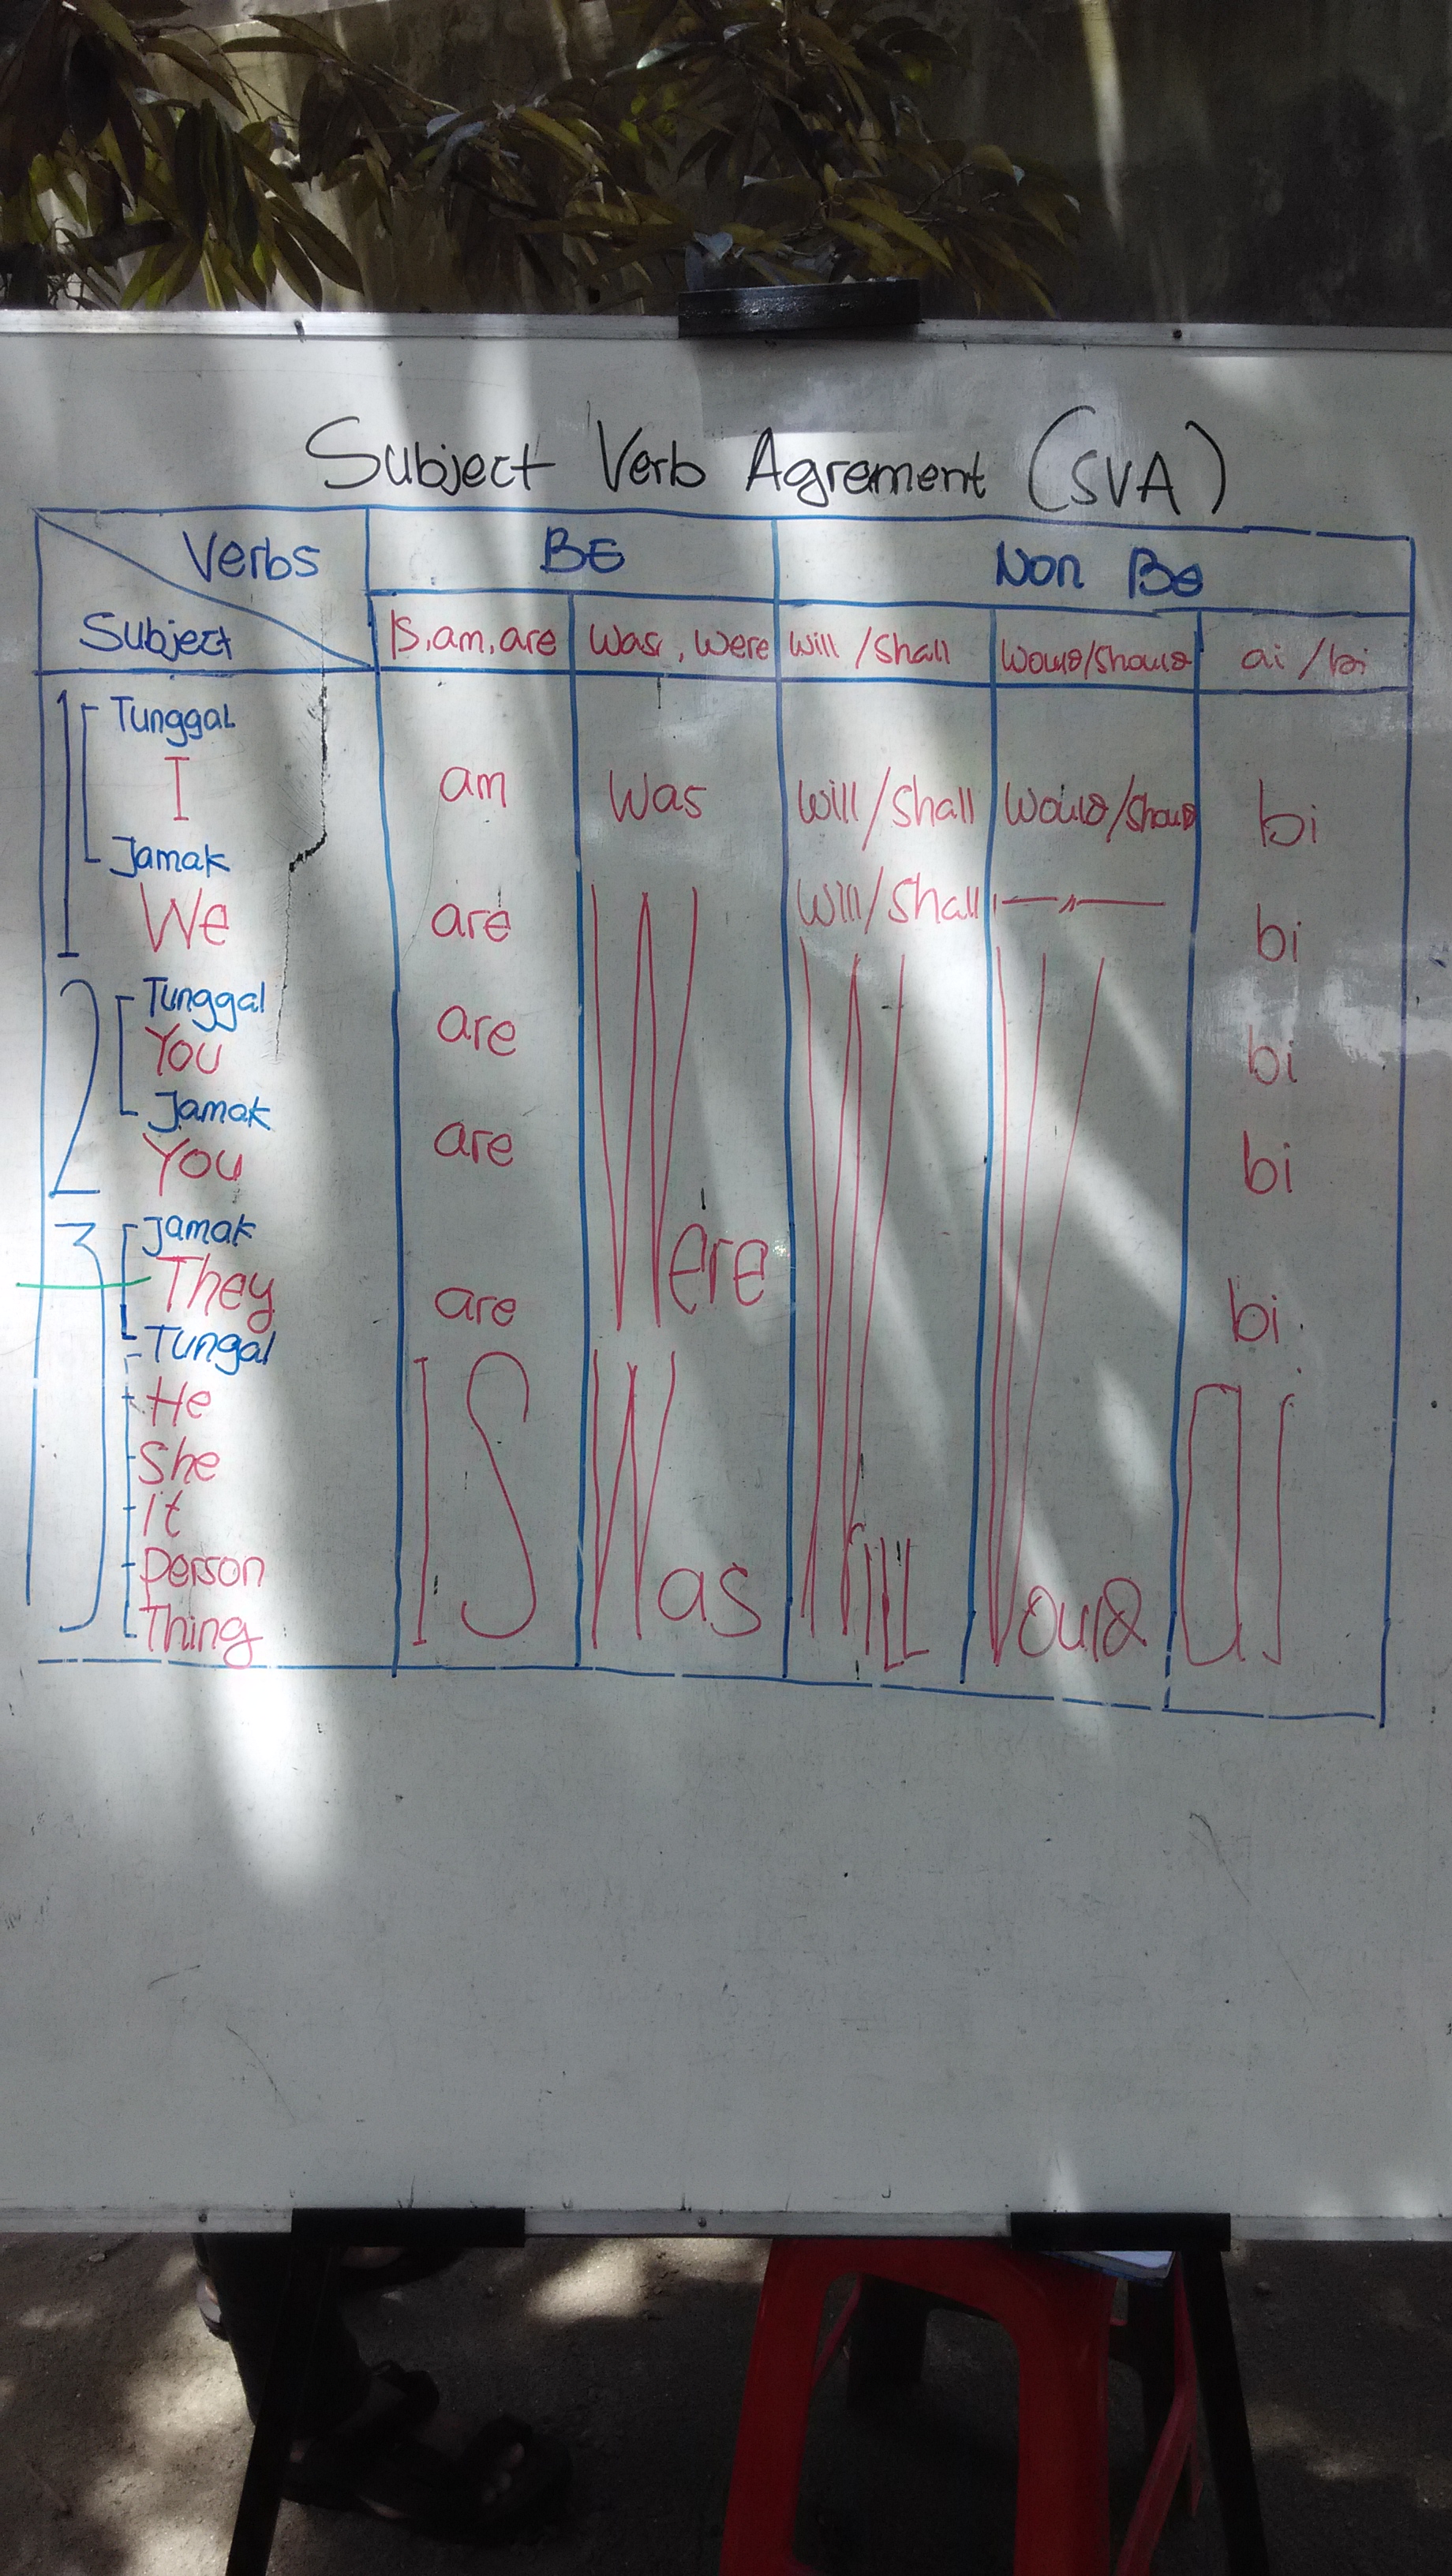 Subject Verb Agrement (SVA)
Verbs BE Non Be
Subject Is, am, are Was, Were Will / Shall Would/Should ai / bi
1 Tunggal
I am Was Will / Shall Would/Should bi
Jamak
We are Were Will / Shall —〃— bi
2 Tunggal
You are bi
Jamak
You are bi
3 Jamak
They are bi
Tungal
He IS Was Will Would ai
She
It
Person
Thing